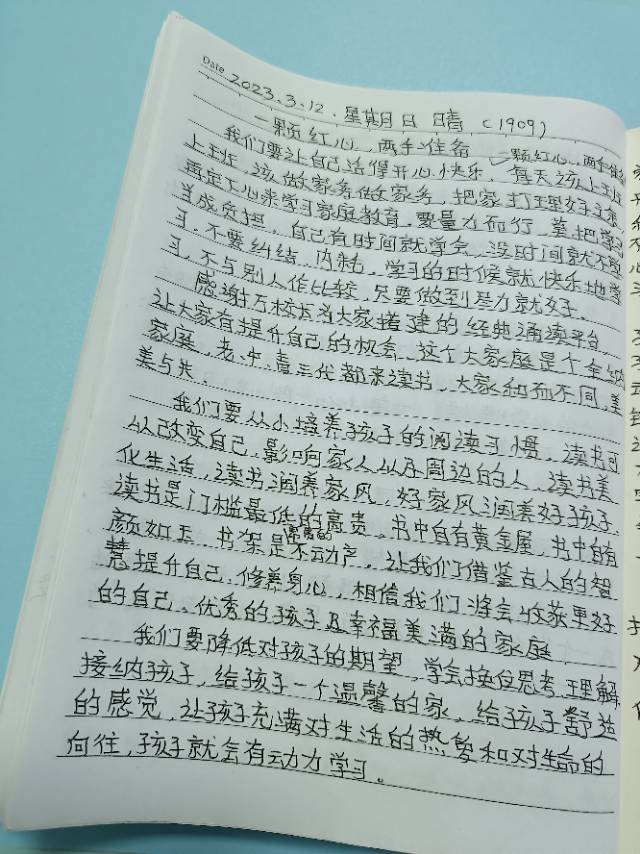 Date 2023.3.12. 星期日 晴 (1909)
一颗红心,两手准备
我们要让自己活得开心快乐,每天该上班
上班,该做家务做家务,把家打理好了,
再定下心来学习家庭教育,要量力而行,莫把学习
当成负担,自己有时间就学会,没时间就不
习,不要纠结、内耗,学习的时候就快乐地学
习,不与别人作比较,只要做到尽力就好。
感谢万校长为大家搭建的经典诵读平台,
让大家有提升自己的机会,这个大家庭是个全纳
家庭,老、中、青三代都来读书,大家和而不同,美
美与共。
我们要从小培养孩子的阅读习惯,读书可
以改变自己,影响家人以及周边的人,读书美
化生活,读书润养家风,好家风润养好孩子,
读书是门槛最低的高贵,书中自有黄金屋,书中自有
颜如玉,书架是不动产,让我们借鉴古人的智
慧提升自己,修养身心,相信我们将会收获更好
的自己、优秀的孩子及幸福美满的家庭。
我们要降低对孩子的期望,学会换位思考,理解
接纳孩子,给孩子一个温馨的家,给孩子舒适
的感觉,让孩子充满对生活的热爱和对生命的
向往,孩子就会有动力学习。